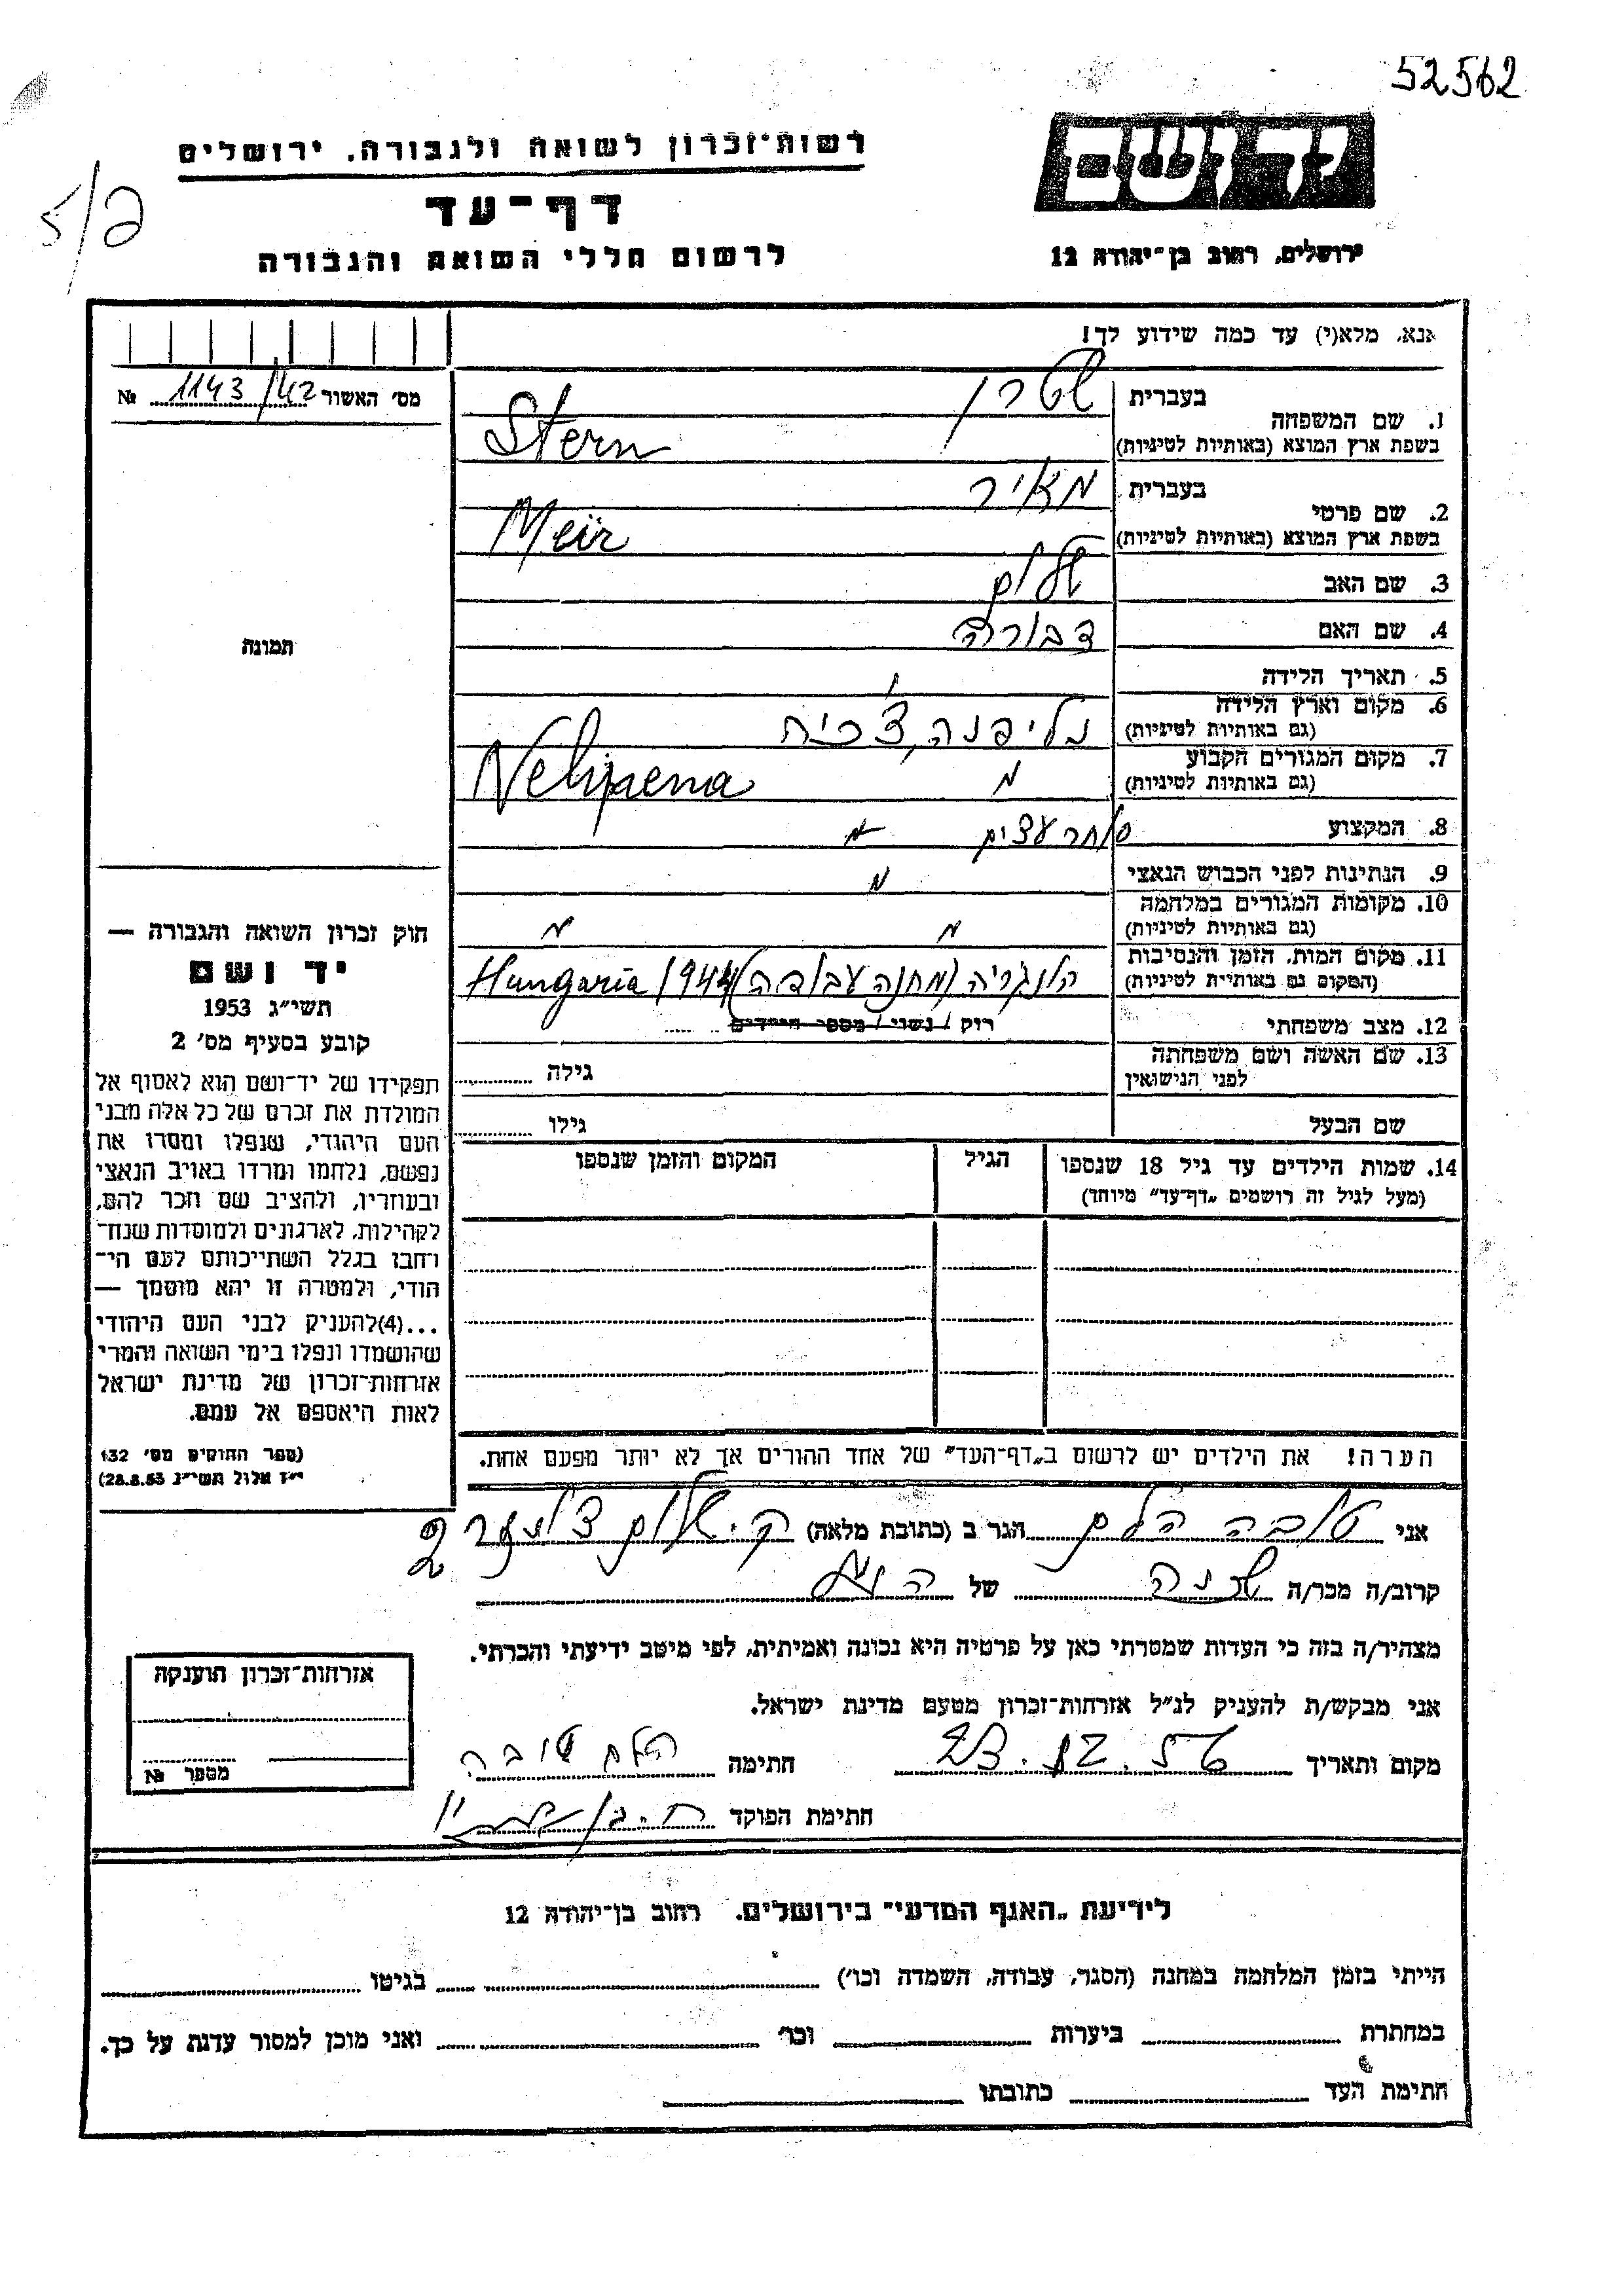 52562
יד ושם
רשות־זכרון לשואה ולגבורה, ירושלים
דף־עד
לרשום חללי השואה והגבורה
ירושלים, רחוב בן־יהודה 12
אנא, מלא(י) עד כמה שידוע לך!
מס׳ האשור 1143/42 №
תמונה
1. שם המשפחה
בעברית שטרן
בשפת ארץ המוצא (באותיות לטיניות) Stern
2. שם פרטי
בעברית מאיר
בשפת ארץ המוצא (באותיות לטיניות) Meir
3. שם האב שלום
4. שם האם דבורה
5. תאריך הלידה
6. מקום וארץ הלידה
(גם באותיות לטיניות) נליפנה, צ׳כיה
7. מקום המגורים הקבוע
(גם באותיות לטיניות) Nelipena
8. המקצוע סוחר עצים
9. הנתינות לפני הכבוש הנאצי
10. מקומות המגורים במלחמה
(גם באותיות לטיניות)
11. מקום המות, הזמן והנסיבות
(המקום גם באותיית לטיניות) הונגריה (מחנה עבודה) 1944 Hungaria
12. מצב משפחתי רוק / נשוי / מספר הילדים
13. שם האשה ושם משפחתה
לפני הנישואין גילה
שם הבעל גילו
14. שמות הילדים עד גיל 18 שנספו הגיל המקום והזמן שנספו
(מעל לגיל זה רושמים „דף־עד״ מיוחד)
הערה! את הילדים יש לרשום ב„דף־העד״ של אחד ההורים אך לא יותר מפעם אחת.
חוק זכרון השואה והגבורה —
יד ושם
תשי״ג 1953
קובע בסעיף מס׳ 2
תפקידו של יד־ושם הוא לאסוף אל
המולדת את זכרם של כל אלה מבני
העם היהודי, שנפלו ומסרו את
נפשם, נלחמו ומרדו באויב הנאצי
ובעוזריו, ולהציב שם וזכר להם,
לקהילות, לארגונים ולמוסדות שנח־
רחבו בגלל השתייכותם לעם הי־
הודי, ולמטרה זו יהא מוסמך —
...(4)להעניק לבני העם היהודי
שהושמדו ונפלו בימי השואה והמרי
אזרחות־זכרון של מדינת ישראל
לאות היאספם אל עמם.
(ספר החוקים מס׳ 132
י״ז אלול תשי״ג 28.8.53)
אני טובה הלם הגר ב (כתובת מלאה) ק. שלום 2
קרוב/ה מכר/ה שכנה של
מצהיר/ה בזה כי העדות שמסרתי כאן על פרטיה היא נכונה ואמיתית, לפי מיטב ידיעתי והכרתי.
אני מבקש/ת להעניק לנ״ל אזרחות־זכרון מטעם מדינת ישראל.
מקום ותאריך 23.12.56 חתימה הלם טובה
חתימת הפוקד
אזרחות־זכרון הוענקה
מספר №
לידיעת „האגף המדעי״ בירושלים, רחוב בן־יהודה 12
הייתי בזמן המלחמה במחנה (הסגר, עבודה, השמדה וכו׳) בגיטו
במחתרת ביערות וכו׳ ואני מוכן למסור עדות על כך.
חתימת העד כתובתו